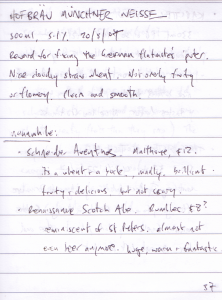 HOFBRÄU MÜNCHNER WEISSE
500ml, 5.1%, 20/5/07
Reward for fixing the German flatmate's 'puter.
Nice cloudy straw wheat. Not overly fruity
or flowery. Clean and smooth.
- Schneider Aventinus. Malthouse, $12.
Its a wheat + a dark. madly brilliant.
fruity + delicious. but not crazy.
- Renaissance Scotch Ale. Rumbles, $8?
reminiscent of St Peters. almost not
even beer anymore. huge, warm + fantastic
37